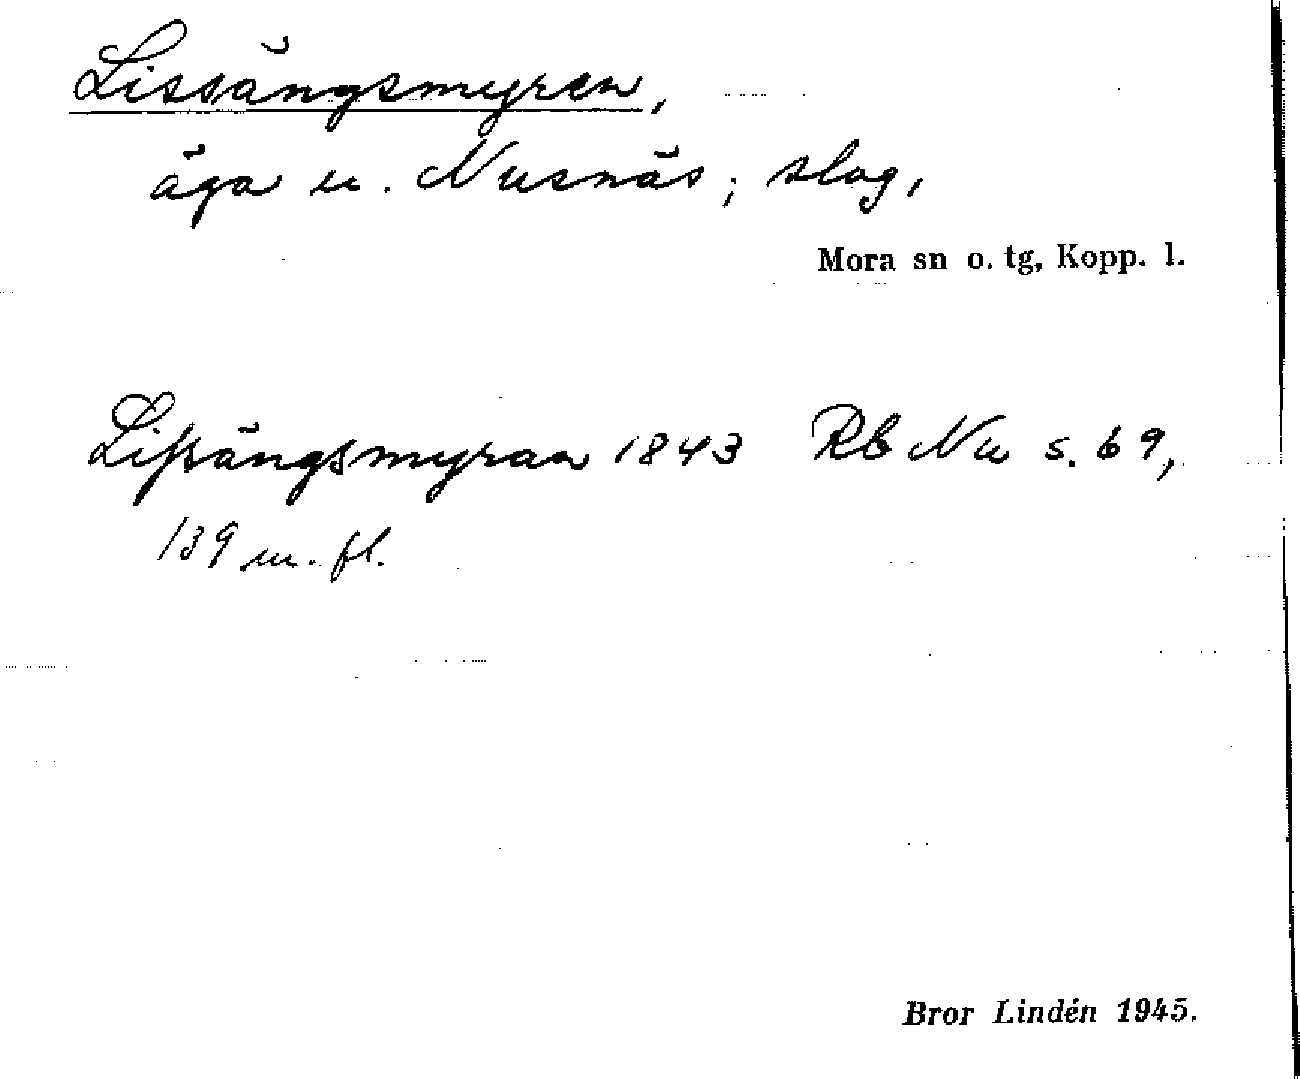 Lissängsmyren,
äga u. Nusnäs; slog,
Mora sn o. tg, Kopp. l.
Lissängsmyran 1843 Rb Nu s. 69,
139 m. fl.
Bror Lindén 1945.